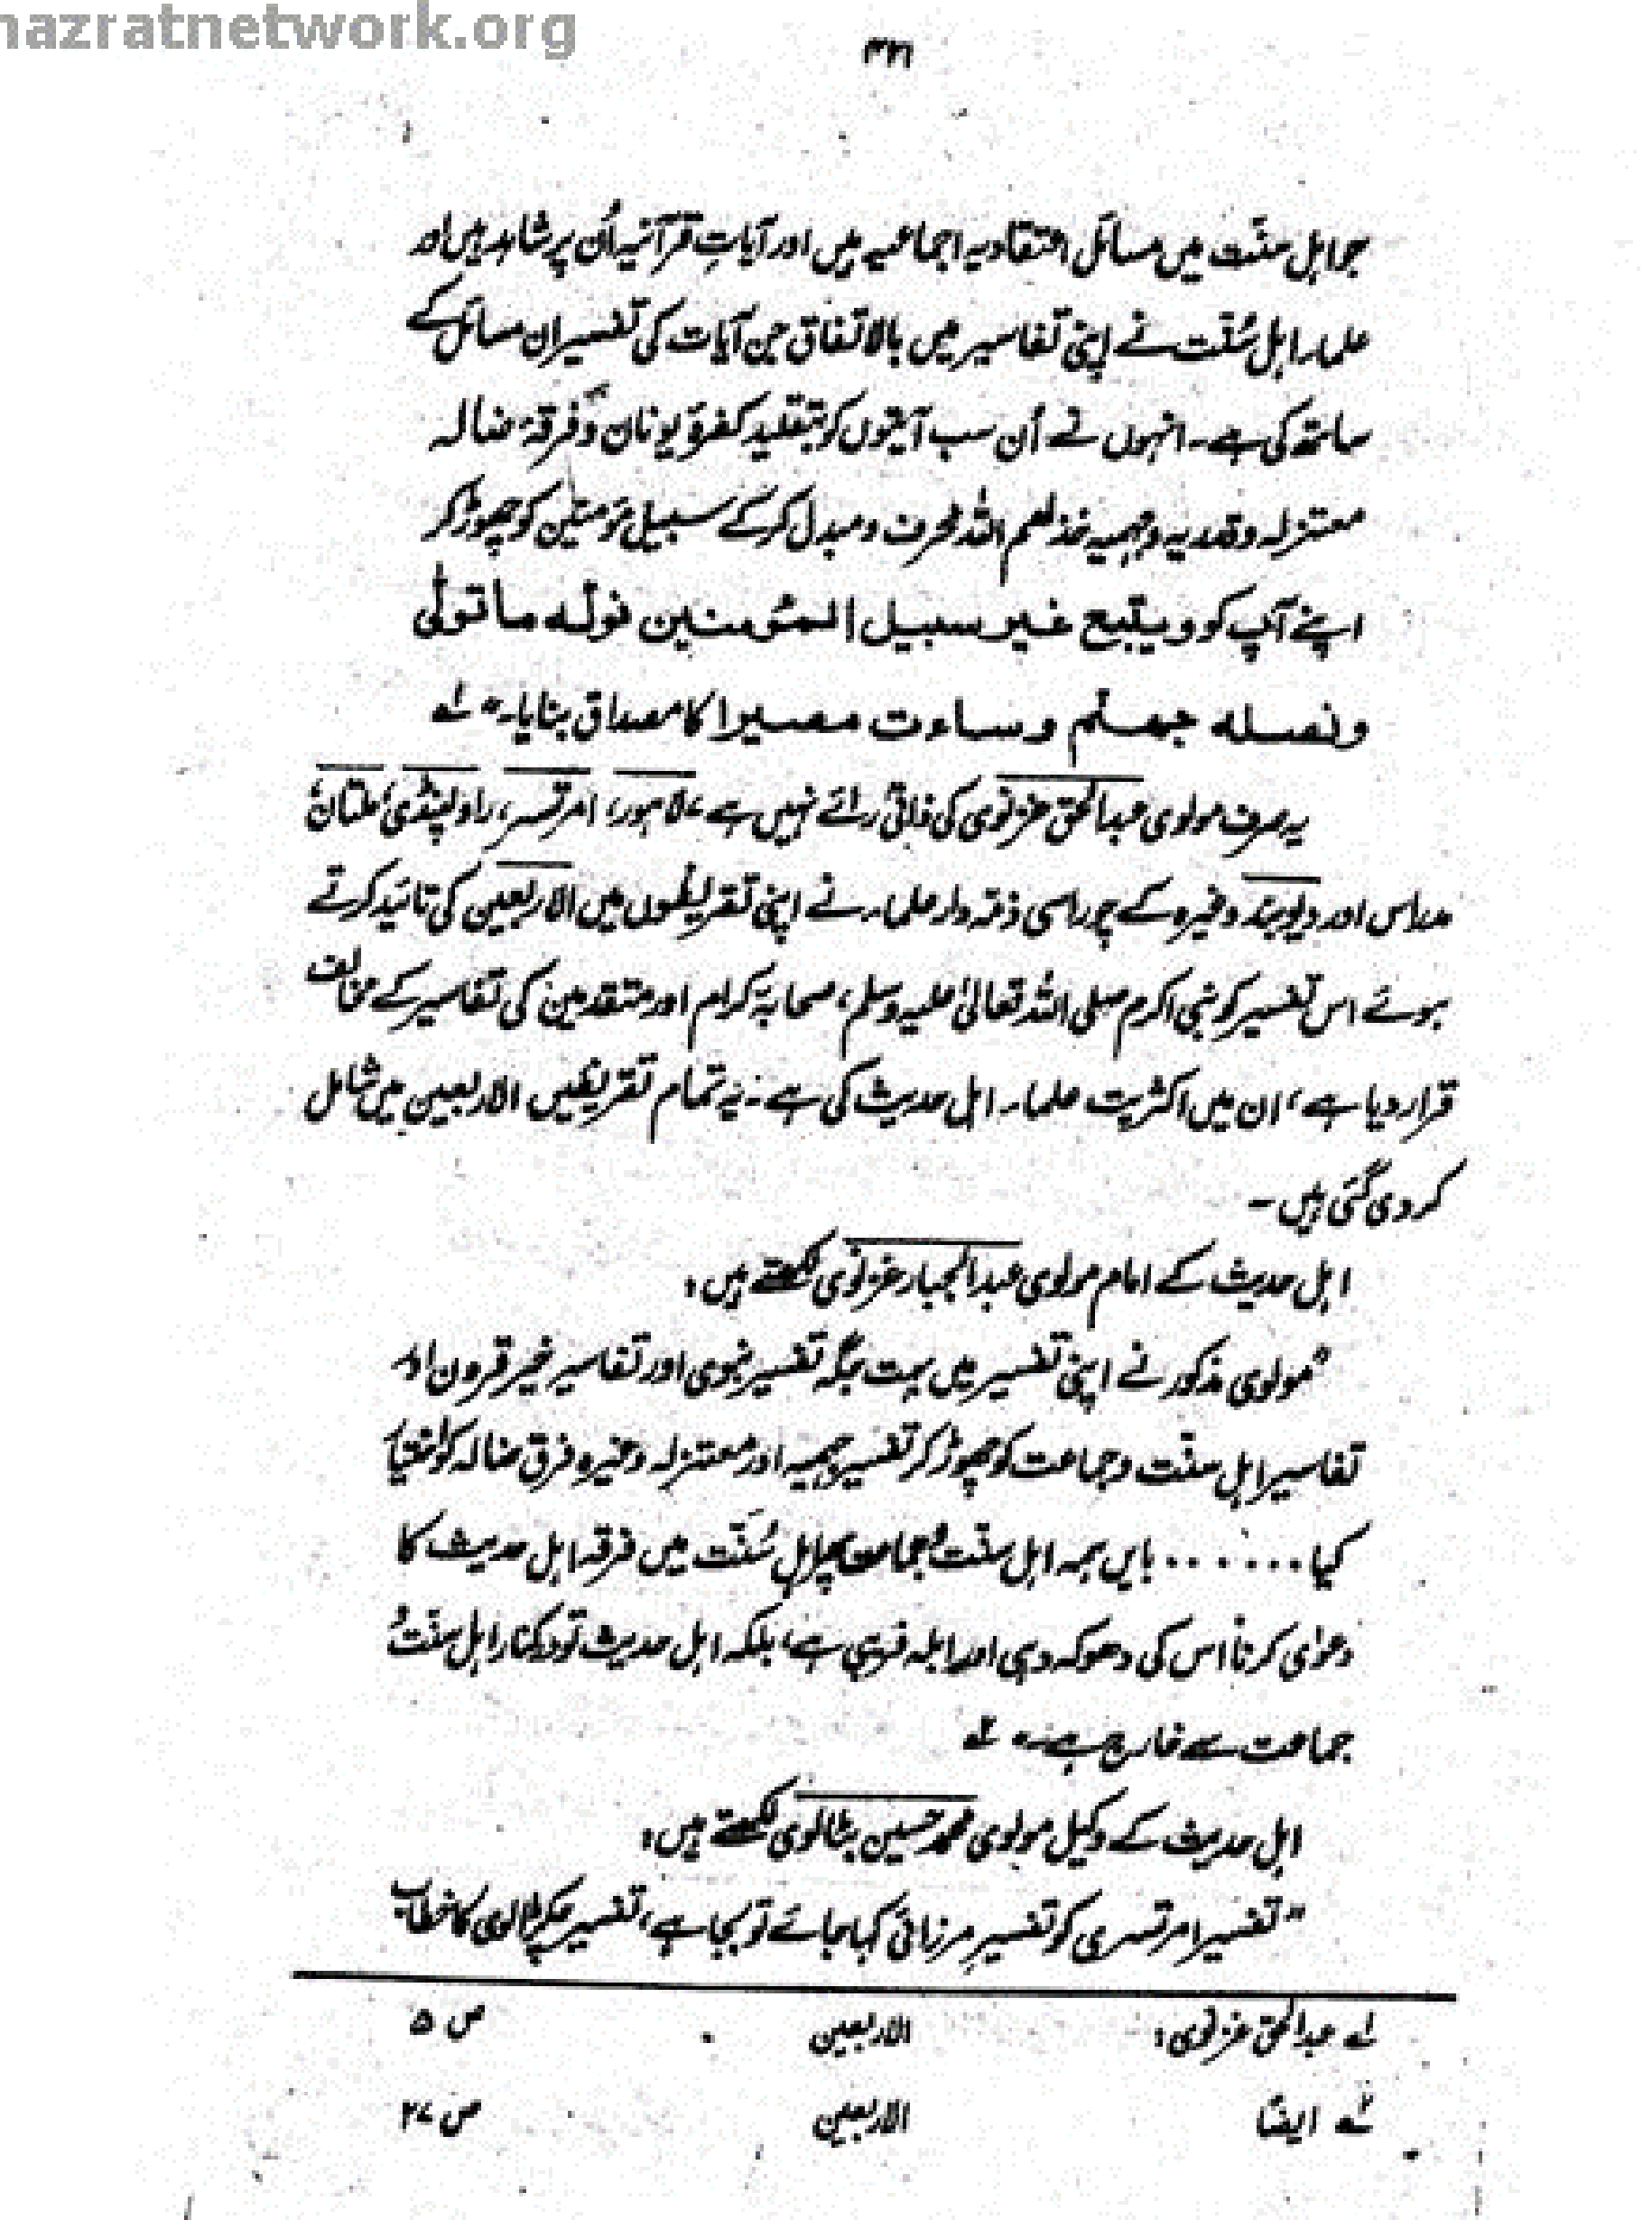 hazratnetwork.org
جو اہل سنّت میں مسائل اعتقادیہ اجماعیہ ہیں اور آیاتِ قرآنیہ اُن پر شاہد ہیں اور
علماء اہل سُنّت نے اپنی تفاسیر میں بالاتفاق جن آیات کی تفسیر ان مسائل کے
ساتھ کی ہے۔ انہوں نے اُن سب آیتوں کو بتقلید کفرۂ یونان و فرقۂ ضالہ
معتزلہ و قدریہ و جہمیہ خذلھم اللہ محرف و مبدل کرکے سبیل مؤمنین کو چھوڑ کر
اپنے آپ کو ویتبع غیر سبیل المؤمنین نولّہ ماتولّٰی
ونصلہ جھنّم وساءت مصیرا کا مصداق بنایا۔" لہ
یہ صرف مولوی عبدالحق غزنوی کی ذاتی رائے نہیں ہے، لاہور، امرتسر، راولپنڈی، ملتان،
مدراس اور دیوبند وغیرہ کے چوراسی ذمّہ دار علماء نے اپنی تقریظوں میں الاربعین کی تائید کرتے
ہوئے اس تفسیر کو نبی اکرم صلی اللہ تعالیٰ علیہ وسلم، صحابۂ کرام اور متقدمین کی تفاسیر کے مخالف
قرار دیا ہے، ان میں اکثریت علماء اہل حدیث کی ہے۔ یہ تمام تقریظیں الاربعین میں شامل
کر دی گئی ہیں۔
اہل حدیث کے امام مولوی عبدالجبار غزنوی لکھتے ہیں:
"مولوی مذکور نے اپنی تفسیر میں بہت جگہ تفسیر نبوی اور تفاسیر خیر قرون اور
تفاسیر اہل سنّت و جماعت کو چھوڑ کر تفسیر جہمیہ اور معتزلہ وغیرہ فرق ضالہ کو اختیار
کیا ...... بایں ہمہ اہل سنّت و جماعت پھر اہل سُنّت میں فرقہ اہل حدیث کا
دعوٰی کرنا اس کی دھوکہ دہی اور ابلہ فریبی ہے، بلکہ اہل حدیث تو درکنار اہل سنّت و
جماعت سے خارج ہے۔" لہ
اہل حدیث کے وکیل مولوی محمد حسین بٹالوی لکھتے ہیں:
"تفسیر امرتسری کو تفسیرِ مرزائی کہا جائے تو بجا ہے، تفسیر چکڑالوی کا خطاب
لہ عبدالحق غزنوی: الاربعین ص ۵
لہ ایضًا الاربعین ص ۲۷